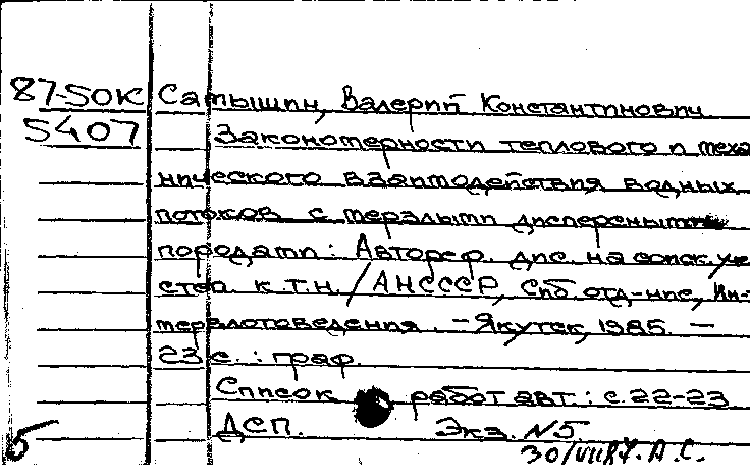 87-5ОК Сатышин, Валерий Константинович
5407 Закономерности теплового и меха
нического взаимодействия водных
потоков с мерзлыми дисперсными
породами: Автореф. дис. на соиск. уч
степ. к.т.н. / АН СССР, Сиб отд-ние, Ин-т
мерзлотоведения. — Якутск, 1985. —
23 с. : граф.
Список работ авт.: с. 22-23
ДСП. Экз. №5
5 30/VII87. А.С.